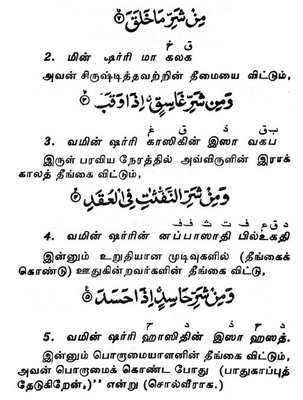 مِنْ شَرِّ مَا خَلَقَ ۝٢
ق خ
2. மின் ஷர்ரி மா கலக
அவன் சிருஷ்டித்தவற்றின் தீமையை விட்டும்,
وَمِنْ شَرِّ غَاسِقٍ إِذَا وَقَبَ ۝٣
ق ب ذ ق غ
3. வமின் ஷர்ரி காஸிகின் இஸா வகப
இருள் பரவிய நேரத்தில் அவ்விருளின் இராக்
காலத் தீங்கை விட்டும்,
وَمِنْ شَرِّ النَّفّٰثٰتِ فِى الْعُقَدِ ۝٤
د ق ع ف ت ث ف ف
4. வமின் ஷர்ரின் னப்பாஸாதி பில்உகதி
இன்னும் உறுதியான முடிவுகளில் (தீங்கைக்
கொண்டு) ஊதுகின்றவர்களின் தீங்கை விட்டு,
وَمِنْ شَرِّ حَاسِدٍ إِذَا حَسَدَ ۝٥
ح ذ د ح
5. வமின் ஷர்ரி ஹாஸிதின் இஸா ஹஸத்.
இன்னும் பொருமையாளனின் தீங்கை விட்டும்,
அவன் பொருமைக் கொண்ட போது (பாதுகாப்புத்
தேடுகிறேன்,)'' என்று (சொல்வீராக.)